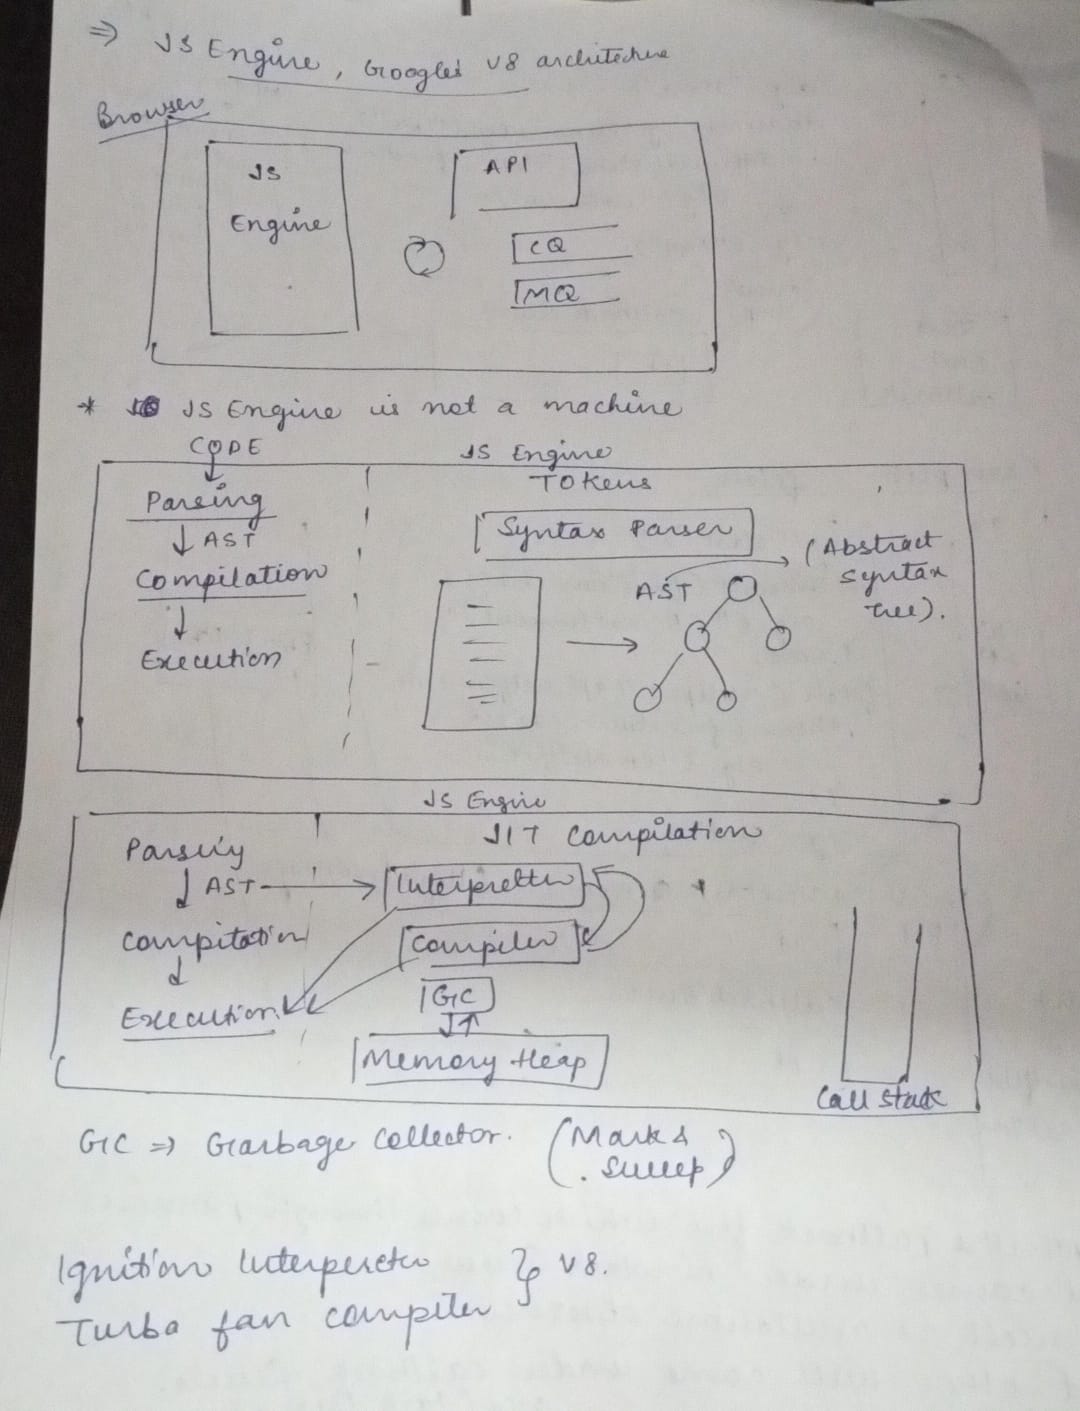 ⇒ JS Engine, Google's V8 architecture
Browser
JS
Engine
API
CQ
MQ
* JS Engine is not a machine
CODE
JS Engine
Parsing
↓ AST
Compilation
↓
Execution
Tokens
Syntax Parser
AST
(Abstract
syntax
tree).
JS Engine
Parsing
↓ AST
Compilation
↓
Execution
JIT Compilation
Interpretter
Compiler
GC
↓↑
Memory Heap
Call Stack
GC ⇒ Garbage Collector. (Mark &
sweep)
Ignition Interpreter } V8.
Turbo fan compiler